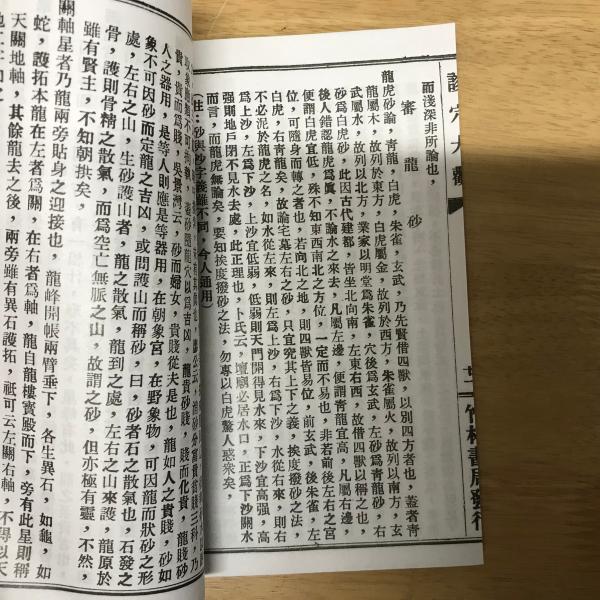 而淺深非所論也，
審龍砂
龍虎砂論，青龍，白虎，朱雀，玄武，乃先賢借四獸，以別四方者也，蓋者青
龍屬木，故列於東方，白虎屬金，故列於西方，朱雀屬火，故列以南方，玄
武屬水，故列以北方，業家以明堂爲朱雀，穴後爲玄武，左砂爲青龍砂，右
砂爲白虎砂，此因古代建都，皆坐北向南，左東右西，故借四獸以稱之也，
後人錯認龍虎爲眞，不論水之來去，凡屬左邊，便謂青龍宜高，凡屬右邊，
便謂白虎宜低，殊不知東西南北之方位，一定而不易也，非若前後左右之宮
位，可隨身而轉之者也，若向北之地，則四獸皆易位，前玄武，後朱雀，左
白虎，右青龍矣，故論宅墓左右之砂，只宜究其上下之義，挨度撥砂之法，
不必泥於龍虎之名，如水從左來，則左爲上沙，右爲下沙，水從右來，則右
爲上沙，左爲下沙，上沙宜低弱，低弱則天門開得見水來，下沙宜高强，高
强則地戶閉不見水去處，此正理也，卜氏云，壇廟必居水口，正爲下沙關水
而言，而龍虎無論矣，要知挨度撥砂之法，勿專以白虎驚人惑衆矣，
（註：砂與沙字義雖不同，今人通用
貴，貴而爲賤，吳景灣云，砂而婦女，貴賤從夫是也，龍如人之貴賤，砂如
人之器用，是等人則應是等器用，在朝象宮，在野象物，可因龍而狀砂之形
象不可因砂而定龍之吉凶，或問護山而稱砂，曰，砂者石之散氣也，石發之
處，左右之山，生砂護山者，龍之散氣，龍到之處，左右之山來護，龍原於
骨，護則骨精之散氣，而爲空亡無脈之山，故謂之砂，但亦極有靈，不然，
雖有賢主，不知朝拱矣，
關軸星者乃龍兩旁貼身之迎接也，龍峰開帳兩臂垂下，各生異石，如龜，如
蛇，護拓本龍在左者爲關，在右者爲軸，龍自龍樓寶殿而下，旁有此星則稱
天關地軸，其餘龍去之後，兩旁雖有異石護拓，祇可云左關右軸，不得以天